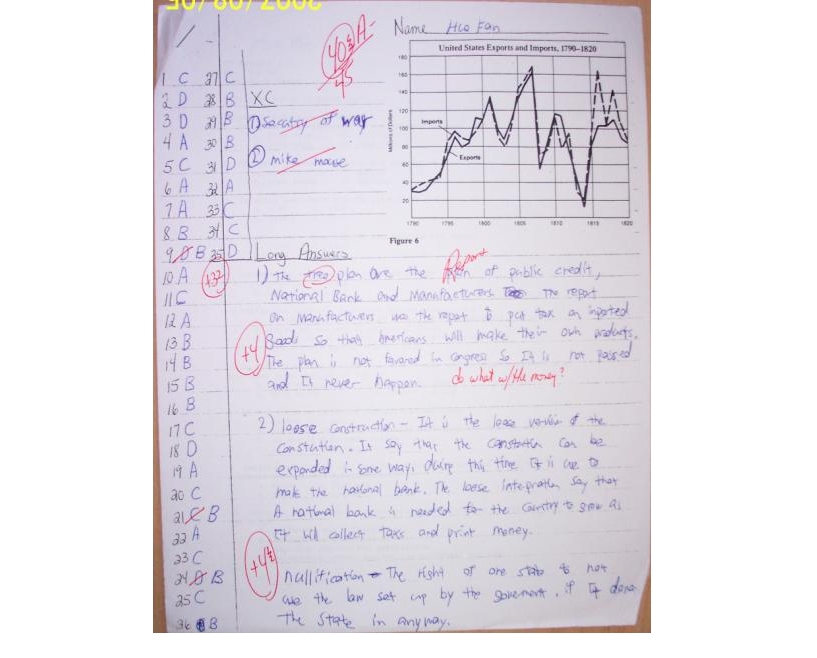 2007/09/30
Name Hua Fan
40½ A-
45
United States Exports and Imports, 1790–1820
Millions of Dollars
180
160
140
120
100
80
60
40
20
Imports
Exports
1790 1795 1800 1805 1810 1815 1820
Figure 6
1 C 27 C
2 D 28 B XC
3 D 29 B ① Secutry of way
4 A 30 B
5 C 31 D ② mike mouse
6 A 32 A
7 A 33 C
8 B 34 C
9 B 35 D Long Answers
+32
10 A
11 C
12 A
13 B
14 B
15 B
16 B
17 C
18 D
19 A
20 C
21 C B
22 A
23 C
24 B
25 C
26 B
1) The tree plan are the Report of public credit,
National Bank and Manufacturers. The report
on Manufacturers was the report to put tax on inported
+4
Goods so that Americans will make their own products.
The plan is not favored in congress so It is not passed
and It never happen. do what w/the money?
2) loose construction – It is the loose version of the
Constution. It say that the constution can be
expanded in some way. during this time It is use to
make the national bank. The loose intepration say that
A national bank is needed for the country to grow as
It will collect taxs and print money.
+4½
nullification – The right of one state to not
use the law set up by the goverment, if It
the State in anyway.